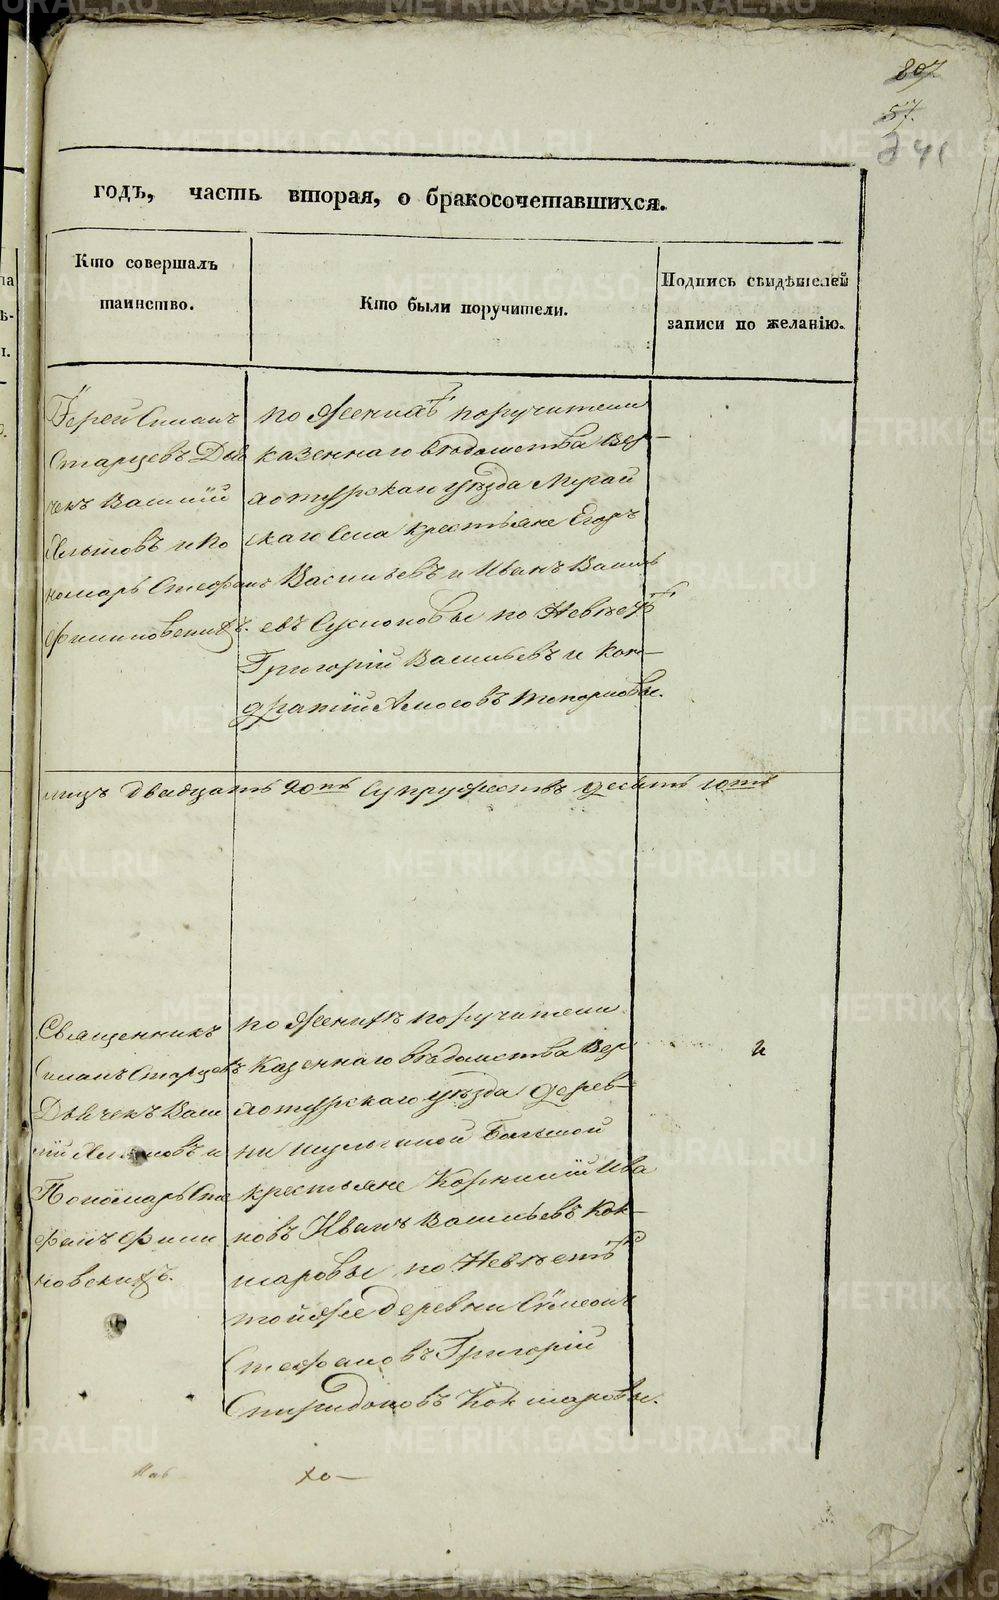 807
57.
241
годъ, часть вторая, о бракосочетавшихся.
Кто совершалъ
таинство.
Кто были поручители.
Подпись свидѣтелей
записи по желанію.
Іерей Симанъ
Старцевъ Дья
чекъ Василій
и По
номарь Стефанъ
Филиповскихъ.
по Женихѣ поручители
казеннаго вѣдомства Вер-
хотурскаго уѣзда Мурзин
скаго села крестьяне Егоръ
Васильевъ и Иванъ Василь
евъ по Невѣстѣ
Григорій Васильевъ и Кон-
дратій Амосовъ Топорковы.
лицъ двадцать 20ть супружествъ десять 10ть
Священникъ
Симанъ Старцевъ
Дьячекъ Васи
лій и
Пономарь Сте
фанъ Фили
повскихъ.
по Женихѣ поручители
Казеннаго вѣдомства Вер
хотурскаго уѣзда дерев-
ни Большой
крестьяне Корнилій Ива
новъ Иванъ Васильевъ Кок-
шаровы, по Невѣстѣ
той же деревни Симеонъ
Стефановъ Григорій
Спиридоновъ Кокшаровы.
METRIKI.GASO-URAL.RU